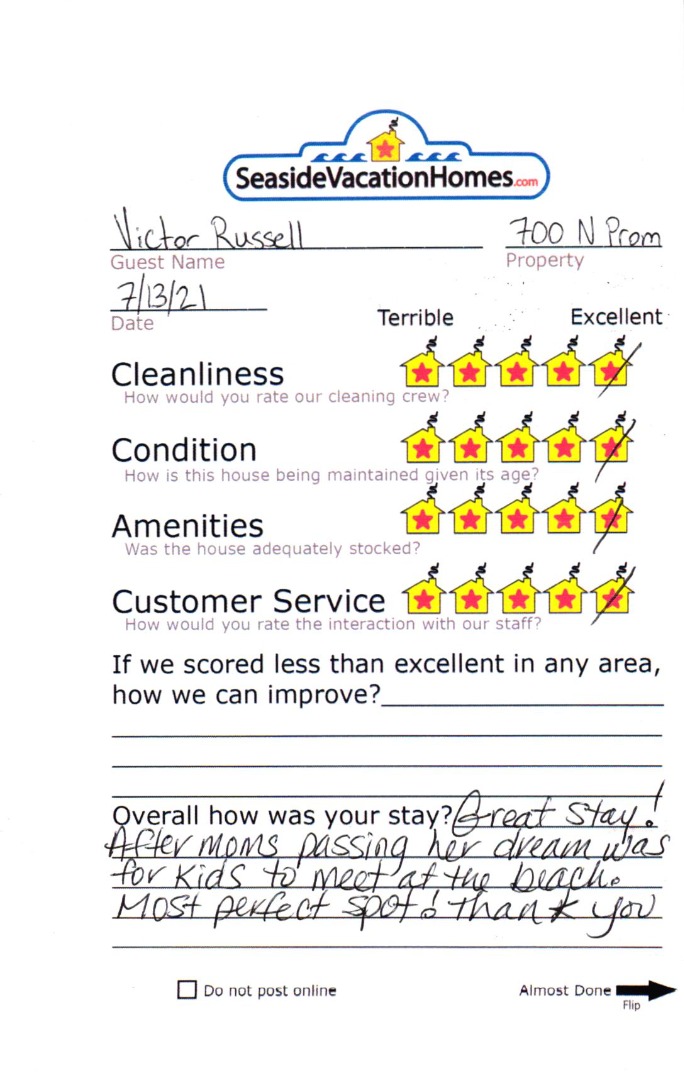 SeasideVacationHomes.com
Victor Russell 700 N Prom
Guest Name Property
7/13/21
Date
Terrible Excellent
Cleanliness
How would you rate our cleaning crew?
Condition
How is this house being maintained given its age?
Amenities
Was the house adequately stocked?
Customer Service
How would you rate the interaction with our staff?
If we scored less than excellent in any area,
how we can improve?
Overall how was your stay? Great Stay!
After moms passing her dream was
for kids to meet at the beach.
Most perfect spot! thank you
Do not post online Almost Done
Flip